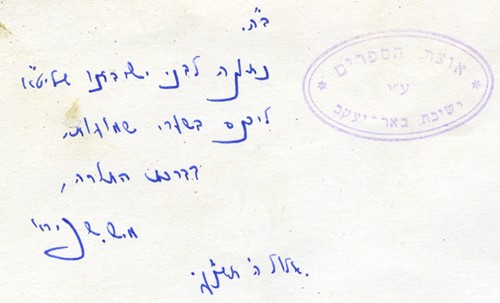 ב"ה.
נתנה לבני ישיבתנו שליט"א
ליכנס בשערי שמועות,
בברכת התורה,
אלול ה'
אוצר הספרים
ע"י
ישיבת באר-יעקב